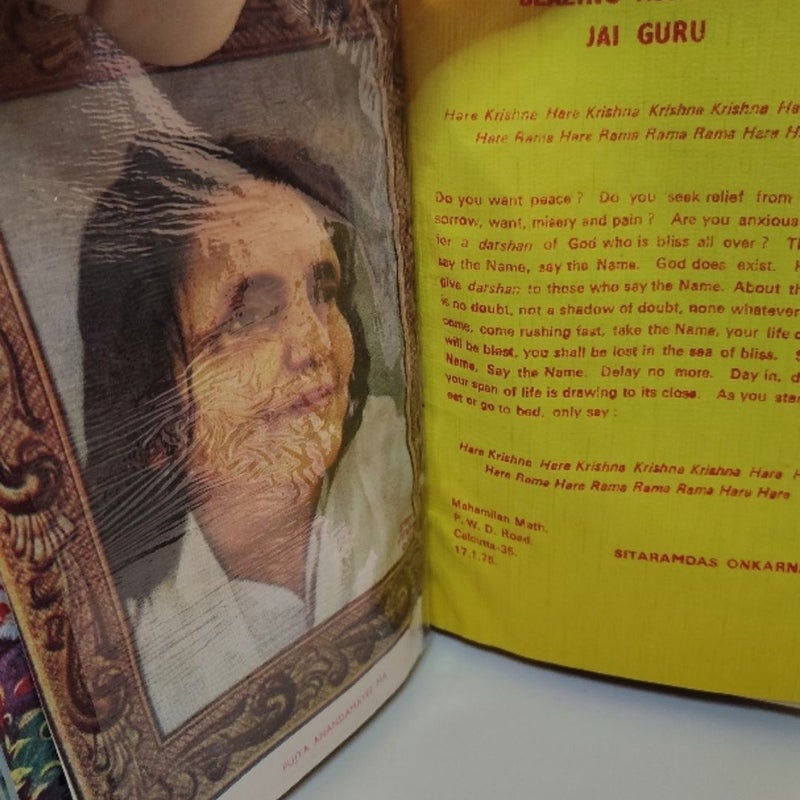 PUJTA ANANDAMAYEE MA
JAI GURU
Hare Krishna Hare Krishna Krishna Krishna
Hare Rama Hare Rama Rama Rama Hare
Do you want peace? Do you seek relief from
sorrow, want, misery and pain? Are you anxious
for a darshan of God who is bliss all over?
say the Name, say the Name. God does exist.
give darshan to those who say the Name. About
is no doubt, not a shadow of doubt, none whatever
come, come rushing fast, take the Name, your life
will be blest, you shall be lost in the sea of bliss.
Name. Say the Name. Delay no more. Day in,
your span of life is drawing to its close. As you
eat or go to bed, only say :
Hare Krishna Hare Krishna Krishna Krishna Hare
Hare Rama Hare Rama Rama Rama Hare Hare
Mahamilan Math.
P. W. D. Road.
Calcutta-35.
17.1.75.
SITARAMDAS